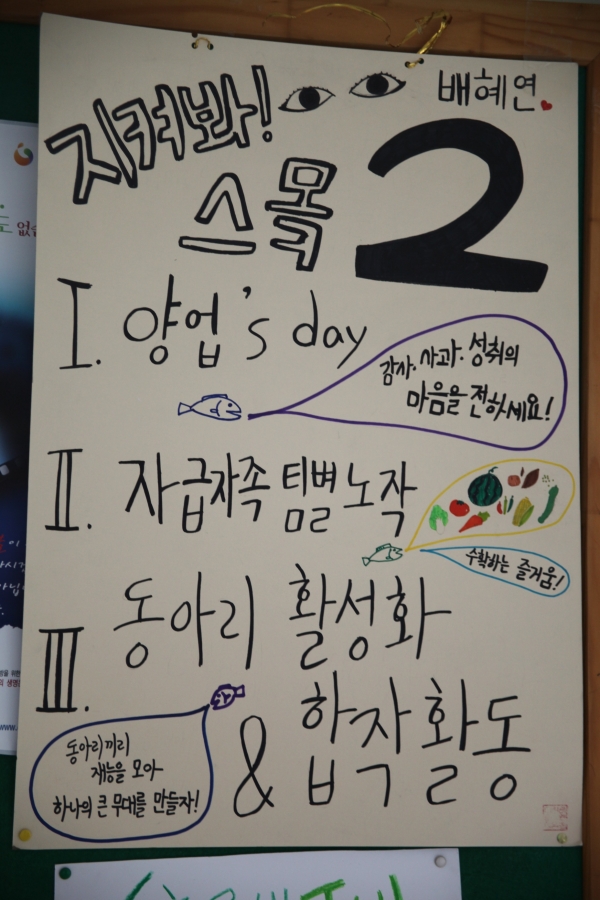 지켜봐!
배혜연
스목 2
I. 양업's day
감사·사과·성취의
마음을 전하세요!
II. 자급자족 팀별 노작
수확하는 즐거움!
III. 동아리 활성화
& 합작 활동
동아리끼리
재능을 모아
하나의 큰 무대를 만들자!